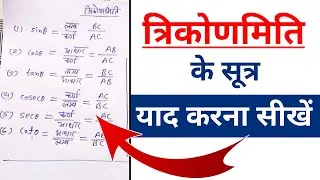 त्रिकोणमिति
(1) sinθ = लम्ब/कर्ण = BC/AC
(2) cosθ = आधार/कर्ण = AB/AC
(3) tanθ = लम्ब/आधार = BC/AB
(4) cosecθ = कर्ण/लम्ब = AC/BC
(5) secθ = कर्ण/आधार = AC
(6) cotθ = आधार/लम्ब = AB/BC
त्रिकोणमिति
के सूत्र
याद करना सीखें